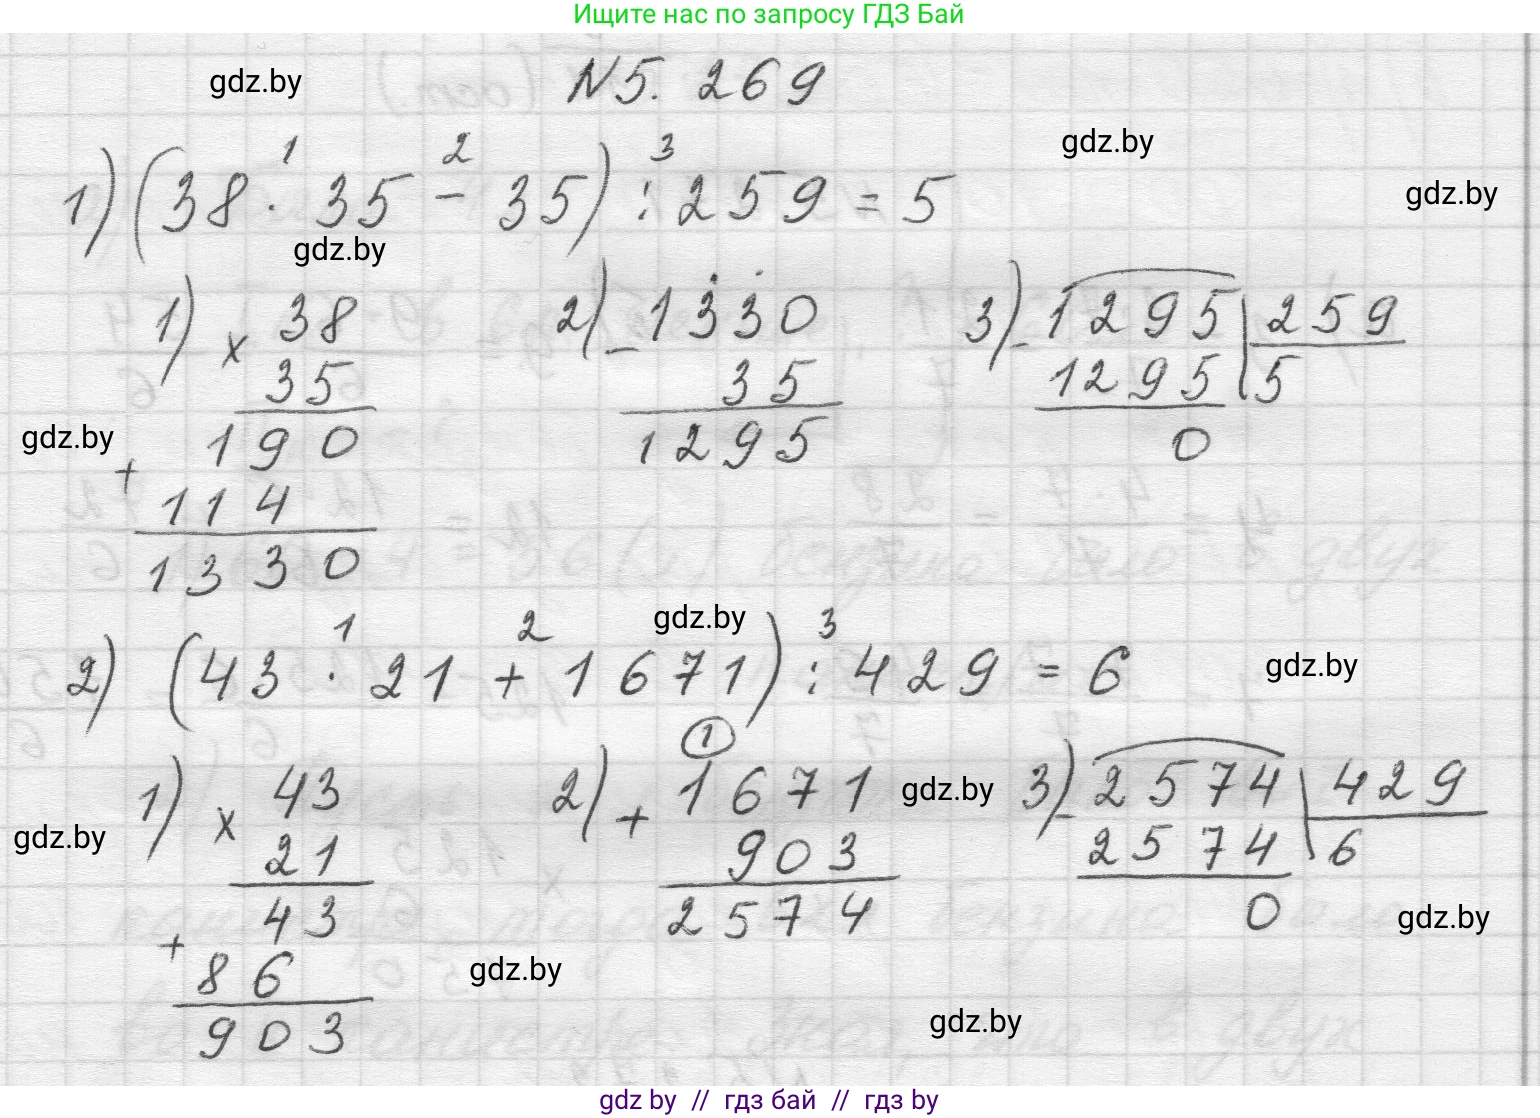 Ищите нас по запросу ГДЗ Бай
gdz.by
N5. 269
gdz.by
1 2 3
1) (38 · 35 - 35) : 259 = 5
gdz.by
gdz.by
1) × 38
35
190
+
114
1330
2) - 1330
35
1295
3) - 1295 | 259
1295 | 5
0
gdz.by
gdz.by
1 2 3
2) (43 · 21 + 1671) : 429 = 6
gdz.by
1) × 43
21
43
+
86
903
1
2) + 1671
903
2574
gdz.by
3) - 2574 | 429
2574 | 6
0
gdz.by
gdz.by
gdz.by
gdz.by
gdz by // гдз бай // гдз by